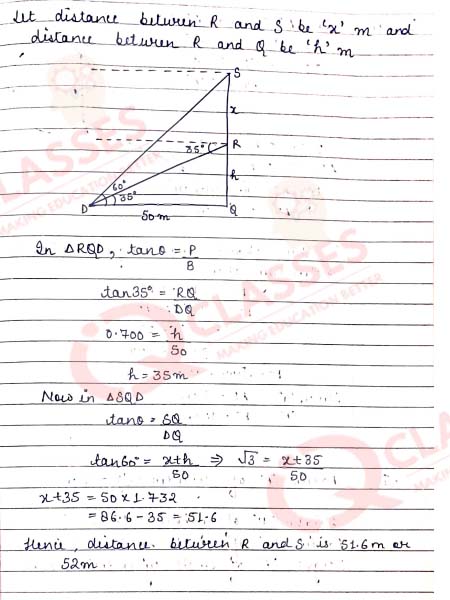 Let distance between R and S be 'x' m and
distance between R and Q be 'h' m
S
x
35° R
h
60°
35°
D Q
50m
In △RQD, tanθ = P/B
tan35° = RQ/DQ
0.700 = h/50
h = 35m
Now in △SQD
tanθ = SQ/DQ
tan60° = x+h/50 ⇒ √3 = x+35/50
x+35 = 50×1.732
= 86.6-35 = 51.6
Hence, distance between R and S is 51.6m or
52m
CLASSES
MAKING EDUCATION BETTER
CLASSES
MAKING EDUCATION BETTER